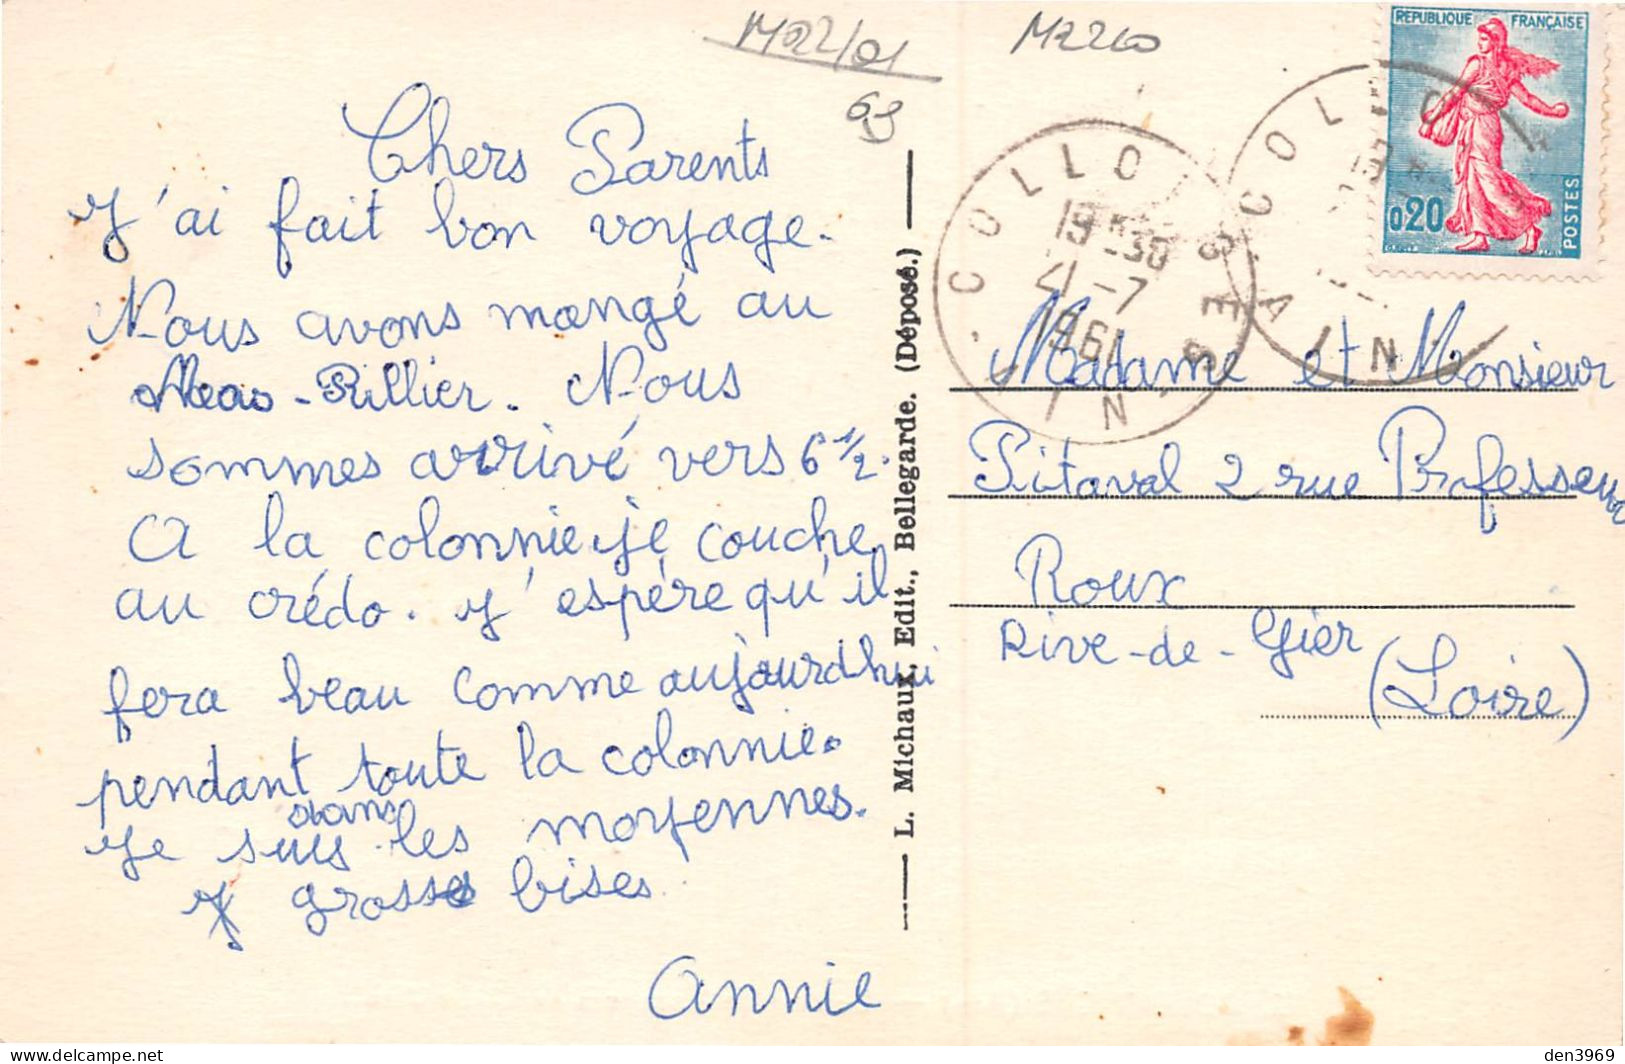 M22/01
69
M2260
REPUBLIQUE FRANÇAISE
0,20
POSTES
COLLONGES
AIN
19 H 30
21 -7
1961
Chers Parents
J'ai fait bon voyage.
Nous avons mangé au
Rillier. Nous
sommes arrivé vers 6 1/2.
A la colonnie je couche
au crédo. J'espére qu'il
fera beau comme aujourdhui
pendant toute la colonnie.
Je suis dans les moyennes.
grosses bises.
Annie
L. Michaux, Edit., Bellegarde. (Déposé.)
Madame et Monsieur
Pitaval 2 rue Professeur
Roux
Rive-de-Gier
(Loire)
den3969